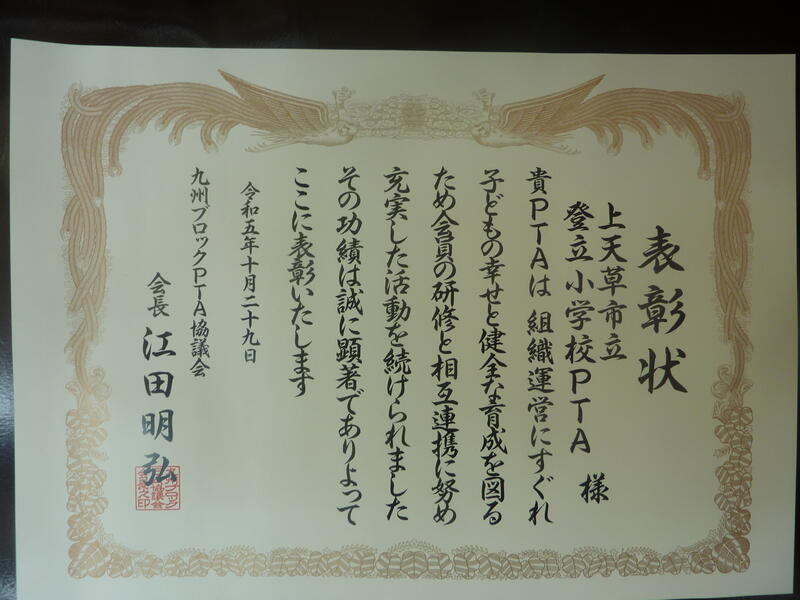 表彰状
上天草市立
登立小学校PTA 様
貴PTAは組織運営にすぐれ
子どもの幸せと健全な育成を図る
ため会員の研修と相互連携に努め
充実した活動を続けられました
その功績は誠に顕著でありよって
ここに表彰いたします
令和五年十月二十九日
九州ブロックPTA協議会
会長 江田明弘